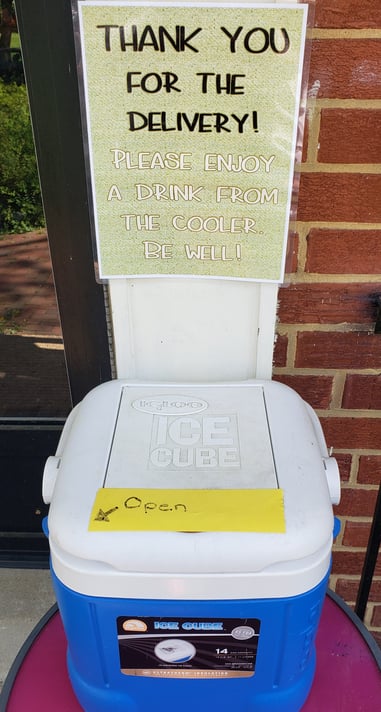 THANK YOU
FOR THE
DELIVERY!
PLEASE ENJOY
A DRINK FROM
THE COOLER.
BE WELL!
IGLOO
ICE
CUBE
Open
ICE CUBE
14
ULTRATHERM INSULATION